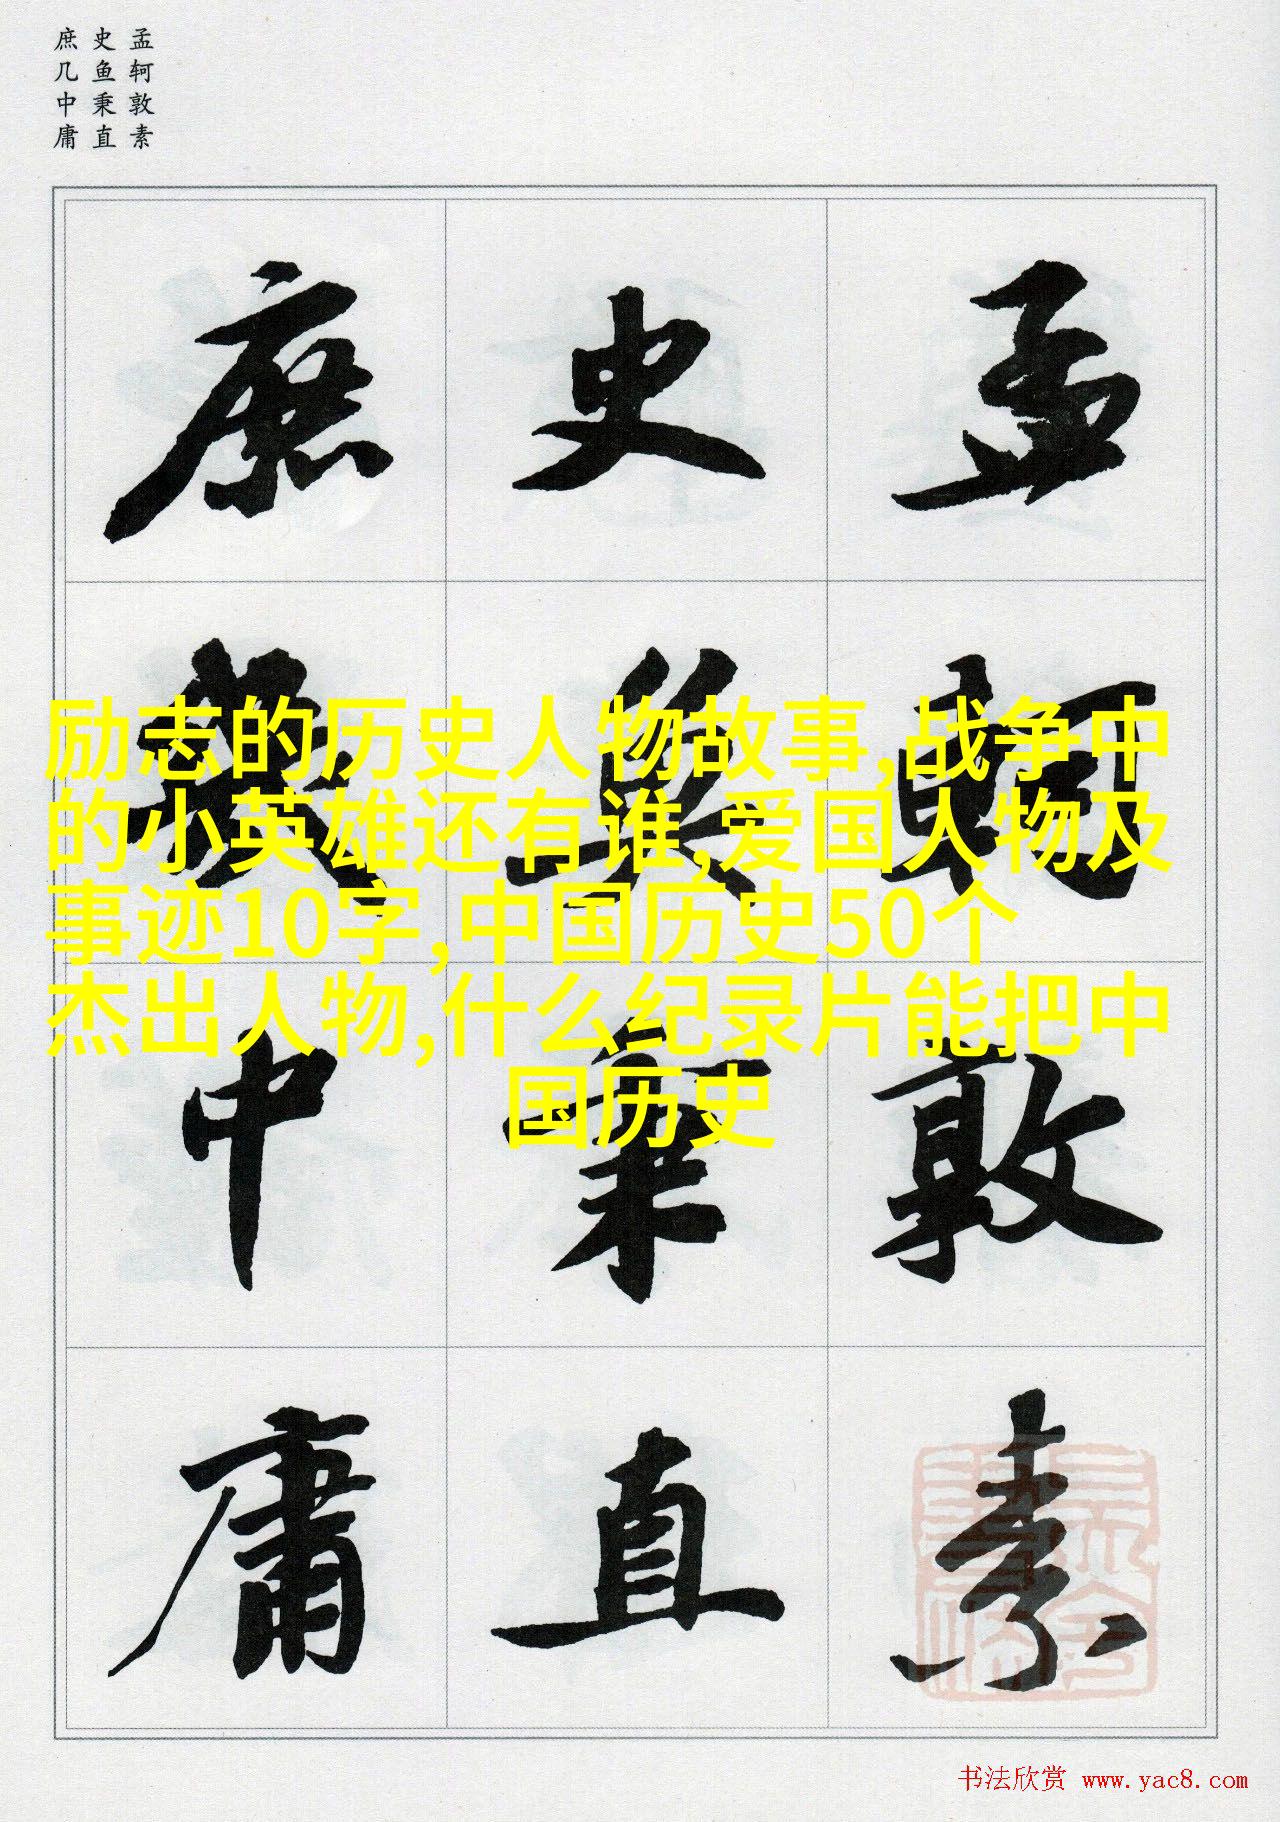 孟轲敦素
史鱼秉直
庶几中庸
孟轲敦素
史鱼秉直
庶几中庸
励志的历史人物故事,战争中
的小英雄还有谁,爱国人物及
事迹10字,中国历史50个
杰出人物,什么纪录片能把中
国历史
书法欣赏 www.yac8.com